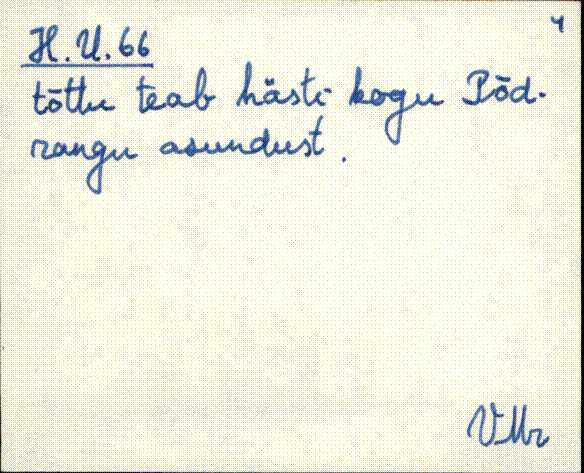 4
H. U. 66
tõttu teab hästi kogu Põd-
rangu asundust.
VMr